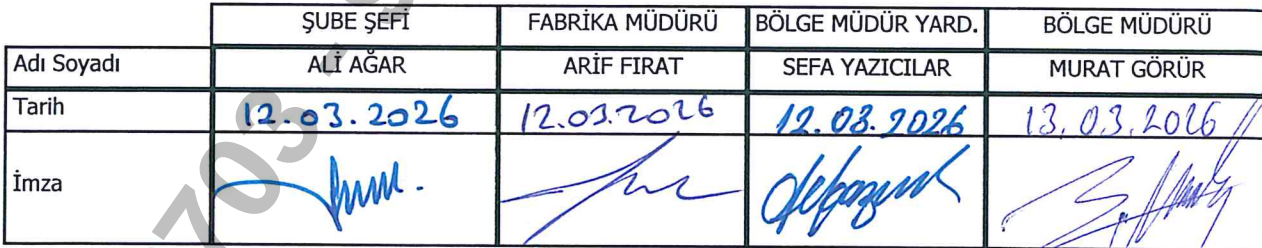 ŞUBE ŞEFİ FABRİKA MÜDÜRÜ BÖLGE MÜDÜR YARD. BÖLGE MÜDÜRÜ
Adı Soyadı ALİ AĞAR ARİF FIRAT SEFA YAZICILAR MURAT GÖRÜR
Tarih 12.03.2026 12.03.2026 12.03.2026 13.03.2026
İmza
703